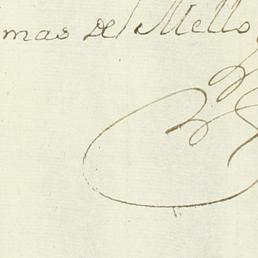 mas de Mello